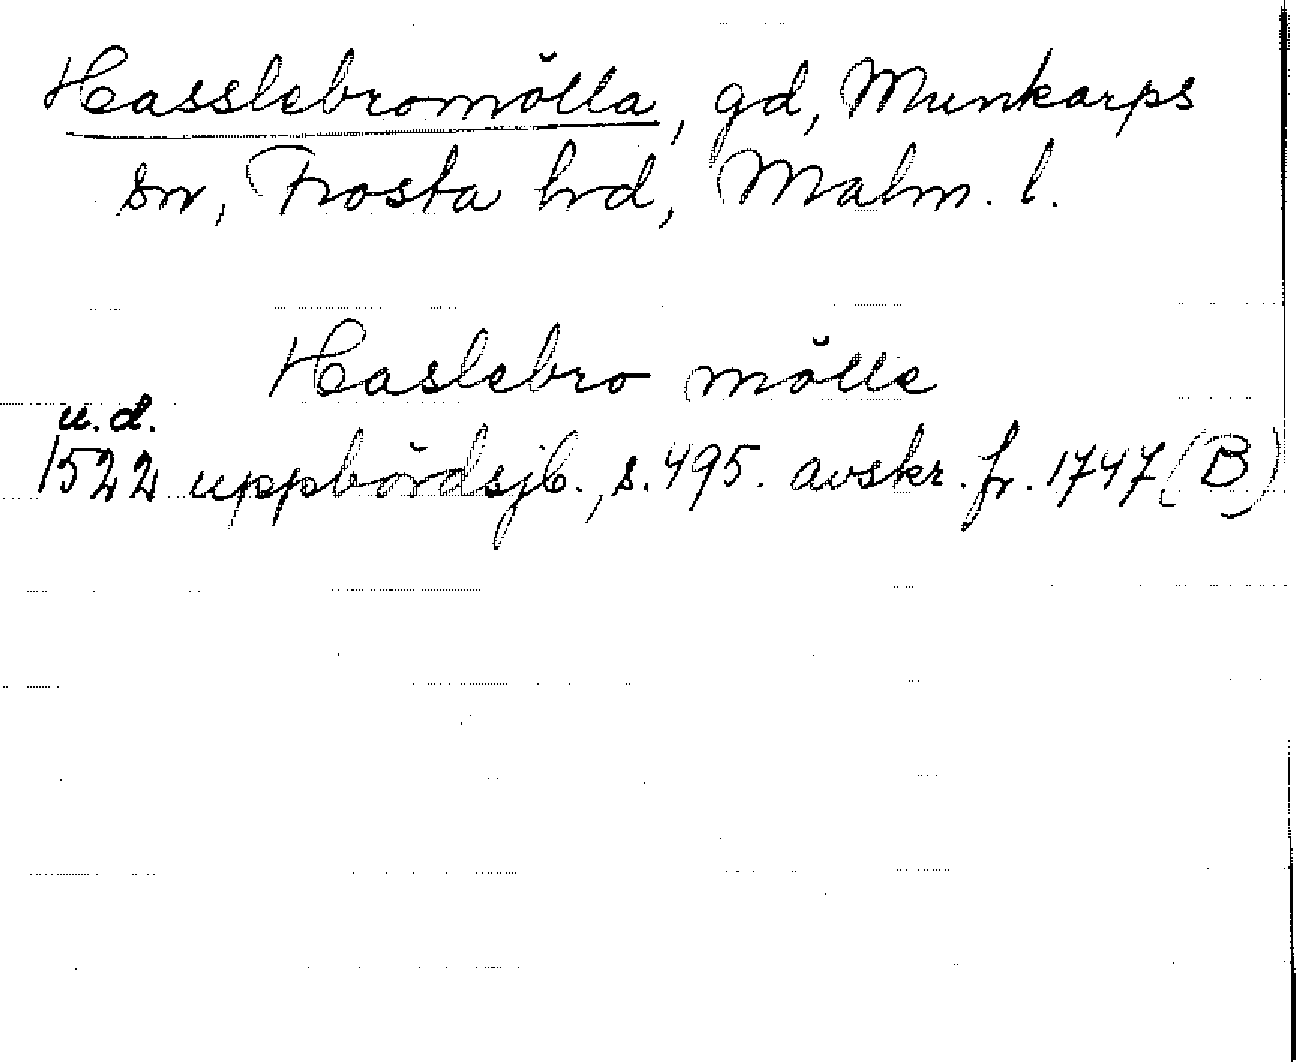 Hasslebromölla, gd, Munkarps
sn, Frosta hrd, Malm. l.
Haslebro mölle
u. d.
1522 uppbördsjb., s. 495. avskr. fr. 1747 (B)